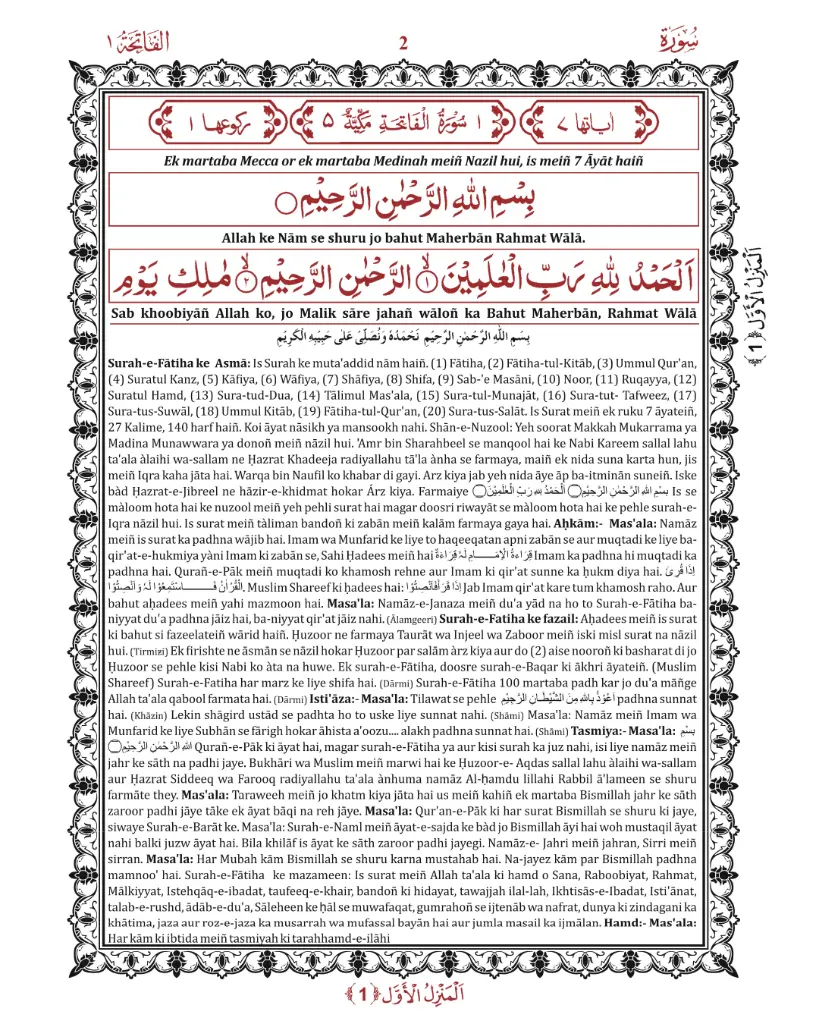 سُوْرَة
2
الفَاتِحَة ١
اٰیاتها ٧
١ سُوْرَةُ الْفَاتِحَةِ مَکِّیَّةٌ ٥
رکوعها ١
Ek martaba Mecca or ek martaba Medinah meiñ Nazil hui, is meiñ 7 Āyāt haiñ
بِسْمِ اللّٰهِ الرَّحْمٰنِ الرَّحِیْمِ۝
Allah ke Nām se shuru jo bahut Maherbān Rahmat Wālā.
اَلْحَمْدُ لِلّٰهِ رَبِّ الْعٰلَمِیْنَ۝١ۙ الرَّحْمٰنِ الرَّحِیْمِ۝٢ۙ مٰلِكِ یَوْمِ
Sab khoobiyāñ Allah ko, jo Malik sāre jahañ wāloñ ka Bahut Maherbān, Rahmat Wālā
بِسْمِ اللّٰهِ الرَّحْمٰنِ الرَّحِیْمِ نَحْمَدُهٗ وَنُصَلِّیْ عَلٰی حَبِیْبِهِ الْکَرِیْم
Surah-e-Fātiha ke Asmā: Is Surah ke muta'addid nām haiñ. (1) Fātiha, (2) Fātiha-tul-Kitāb, (3) Ummul Qur'an,
(4) Suratul Kanz, (5) Kāfiya, (6) Wāfiya, (7) Shāfiya, (8) Shifa, (9) Sab-'e Masāni, (10) Noor, (11) Ruqayya, (12)
Suratul Hamd, (13) Sura-tud-Dua, (14) Tālimul Mas'ala, (15) Sura-tul-Munajāt, (16) Sura-tut- Tafweez, (17)
Sura-tus-Suwāl, (18) Ummul Kitāb, (19) Fātiha-tul-Qur'an, (20) Sura-tus-Salāt. Is Surat meiñ ek ruku 7 āyateiñ,
27 Kalime, 140 harf haiñ. Koi āyat nāsikh ya mansookh nahi. Shān-e-Nuzool: Yeh soorat Makkah Mukarrama ya
Madina Munawwara ya donoñ meiñ nāzil hui. 'Amr bin Sharahbeel se manqool hai ke Nabi Kareem sallal lahu
ta'ala àlaihi wa-sallam ne Ḥazrat Khadeeja radiyallahu tā'la ànha se farmaya, maiñ ek nida suna karta hun, jis
meiñ Iqra kaha jāta hai. Warqa bin Naufil ko khabar di gayi. Arz kiya jab yeh nida āye āp ba-itminān suneiñ. Iske
bàd Ḥazrat-e-Jibreel ne hāzir-e-khidmat hokar Árz kiya. Farmaiye بِسْمِ اللهِ الرَّحْمٰنِ الرَّحِیْمِ۝ اَلْحَمْدُ لِلهِ رَبِّ الْعٰلَمِیْنَ۝ Is se
màloom hota hai ke nuzool meiñ yeh pehli surat hai magar doosri riwayāt se màloom hota hai ke pehle surah-e-
Iqra nāzil hui. Is surat meiñ tàliman bandoñ ki zabán meiñ kalám farmaya gaya hai. Aḥkām:- Mas'ala: Namāz
meiñ is surat ka padhna wājib hai. Imam wa Munfarid ke liye to haqeeqatan apni zabān se aur muqtadi ke liye ba-
qir'at-e-hukmiya yàni Imam ki zabān se, Sahi Ḥadees meiñ hai قِرَاءَةُ الْاِمَامِ لَهٗ قِرَاءَةٌ Imam ka padhna hi muqtadi ka
padhna hai. Qurañ-e-Pāk meiñ muqtadi ko khamosh rehne aur Imam ki qir'at sunne ka ḥukm diya hai. اِذَا قُرِئَ
الْقُرْاٰنُ فَاسْتَمِعُوْا لَهٗ وَاَنْصِتُوْا. Muslim Shareef ki ḥadees hai: اِذَا قَرَأَ فَاَنْصِتُوْا Jab Imam qir'at kare tum khamosh raho. Aur
bahut aḥadees meiñ yahi mazmoon hai. Masa'la: Namāz-e-Janaza meiñ du'a yād na ho to Surah-e-Fātiha ba-
niyyat du'a padhna jāiz hai, ba-niyyat qir'at jāiz nahi. (Ālamgeeri) Surah-e-Fatiha ke fazail: Aḥadees meiñ is surat
ki bahut si fazeelateiñ wārid haiñ. Ḥuzoor ne farmaya Taurāt wa Injeel wa Zaboor meiñ iski misl surat na nāzil
hui. (Tirmizi) Ek firishte ne āsmān se nāzil hokar Ḥuzoor par salām àrz kiya aur do (2) aise nooroñ ki basharat di jo
Ḥuzoor se pehle kisi Nabi ko àta na huwe. Ek surah-e-Fātiha, doosre surah-e-Baqar ki ākhri āyateiñ. (Muslim
Shareef) Surah-e-Fatiha har marz ke liye shifa hai. (Dārmi) Surah-e-Fātiha 100 martaba padh kar jo du'a māñge
Allah ta'ala qabool farmata hai. (Dārmi) Isti'āza:- Masa'la: Tilawat se pehle اَعُوْذُ بِاللهِ مِنَ الشَّیْطَانِ الرَّجِیْمِ padhna sunnat
hai. (Khāzin) Lekin shāgird ustād se padhta ho to uske liye sunnat nahi. (Shāmi) Masa'la: Namāz meiñ Imam wa
Munfarid ke liye Subhān se fārigh hokar āhista a'oozu.... alakh padhna sunnat hai. (Shāmi) Tasmiya:- Masa'la: بِسْمِ
اللهِ الرَّحْمٰنِ الرَّحِیْمِ۝ Qurañ-e-Pāk ki āyat hai, magar surah-e-Fātiha ya aur kisi surah ka juz nahi, isi liye namāz meiñ
jahr ke sāth na padhi jaye. Bukhāri wa Muslim meiñ marwi hai ke Ḥuzoor-e- Aqdas sallal lahu àlaihi wa-sallam
aur Ḥazrat Siddeeq wa Farooq radiyallahu ta'ala ànhuma namāz Al-ḥamdu lillahi Rabbil ā'lameen se shuru
farmāte they. Mas'ala: Taraweeh meiñ jo khatm kiya jāta hai us meiñ kahiñ ek martaba Bismillah jahr ke sāth
zaroor padhi jāye tāke ek āyat bāqi na reh jāye. Masa'la: Qur'an-e-Pāk ki har surat Bismillah se shuru ki jaye,
siwaye Surah-e-Barāt ke. Masa'la: Surah-e-Naml meiñ āyat-e-sajda ke bàd jo Bismillah āyi hai woh mustaqil āyat
nahi balki juzw āyat hai. Bila khilāf is āyat ke sāth zaroor padhi jayegi. Namāz-e- Jahri meiñ jahran, Sirri meiñ
sirran. Masa'la: Har Mubah kām Bismillah se shuru karna mustahab hai. Na-jayez kām par Bismillah padhna
mamnoo' hai. Surah-e-Fātiha ke mazameen: Is surat meiñ Allah ta'ala ki hamd o Sana, Raboobiyat, Rahmat,
Mālkiyyat, Istehqāq-e-ibadat, taufeeq-e-khair, bandoñ ki hidayat, tawajjah ilal-lah, Ikhtisās-e-Ibadat, Isti'ānat,
talab-e-rushd, ādāb-e-du'a, Sāleheen ke ḥāl se muwafaqat, gumrahoñ se ijtenāb wa nafrat, dunya ki zindagani ka
khātima, jaza aur roz-e-jaza ka musarrah wa mufassal bayān hai aur jumla masail ka ijmālan. Hamd:- Mas'ala:
Har kām ki ibtida meiñ tasmiyah ki tarahhamd-e-ilāhi
اَلْمَنْزِلُ الْاَوَّل ﴿1﴾
اَلْمَنْزِلُ الْاَوَّل ﴿1﴾